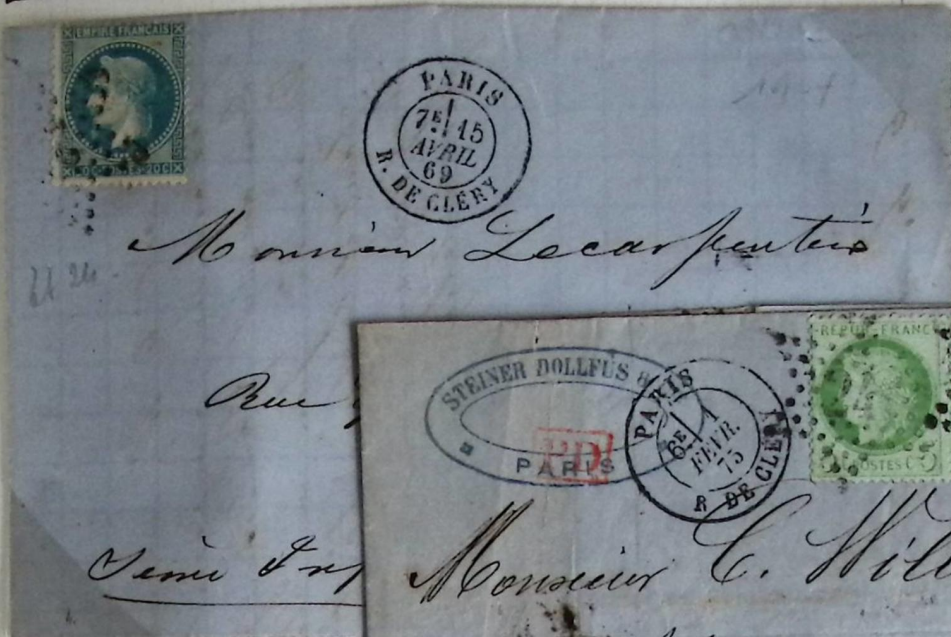 EMPIRE FRANÇAIS
20 C
PARIS
7E 15
AVRIL
69
R. DE CLÉRY
Monsieur Lecarpentier
Rue
Seine Inf
STEINER DOLLFUS &
PARIS
PD
PARIS
6E 1
FEVR.
75
R DE CLÉRY
REPUB FRANC
POSTES
Monsieur C. Will